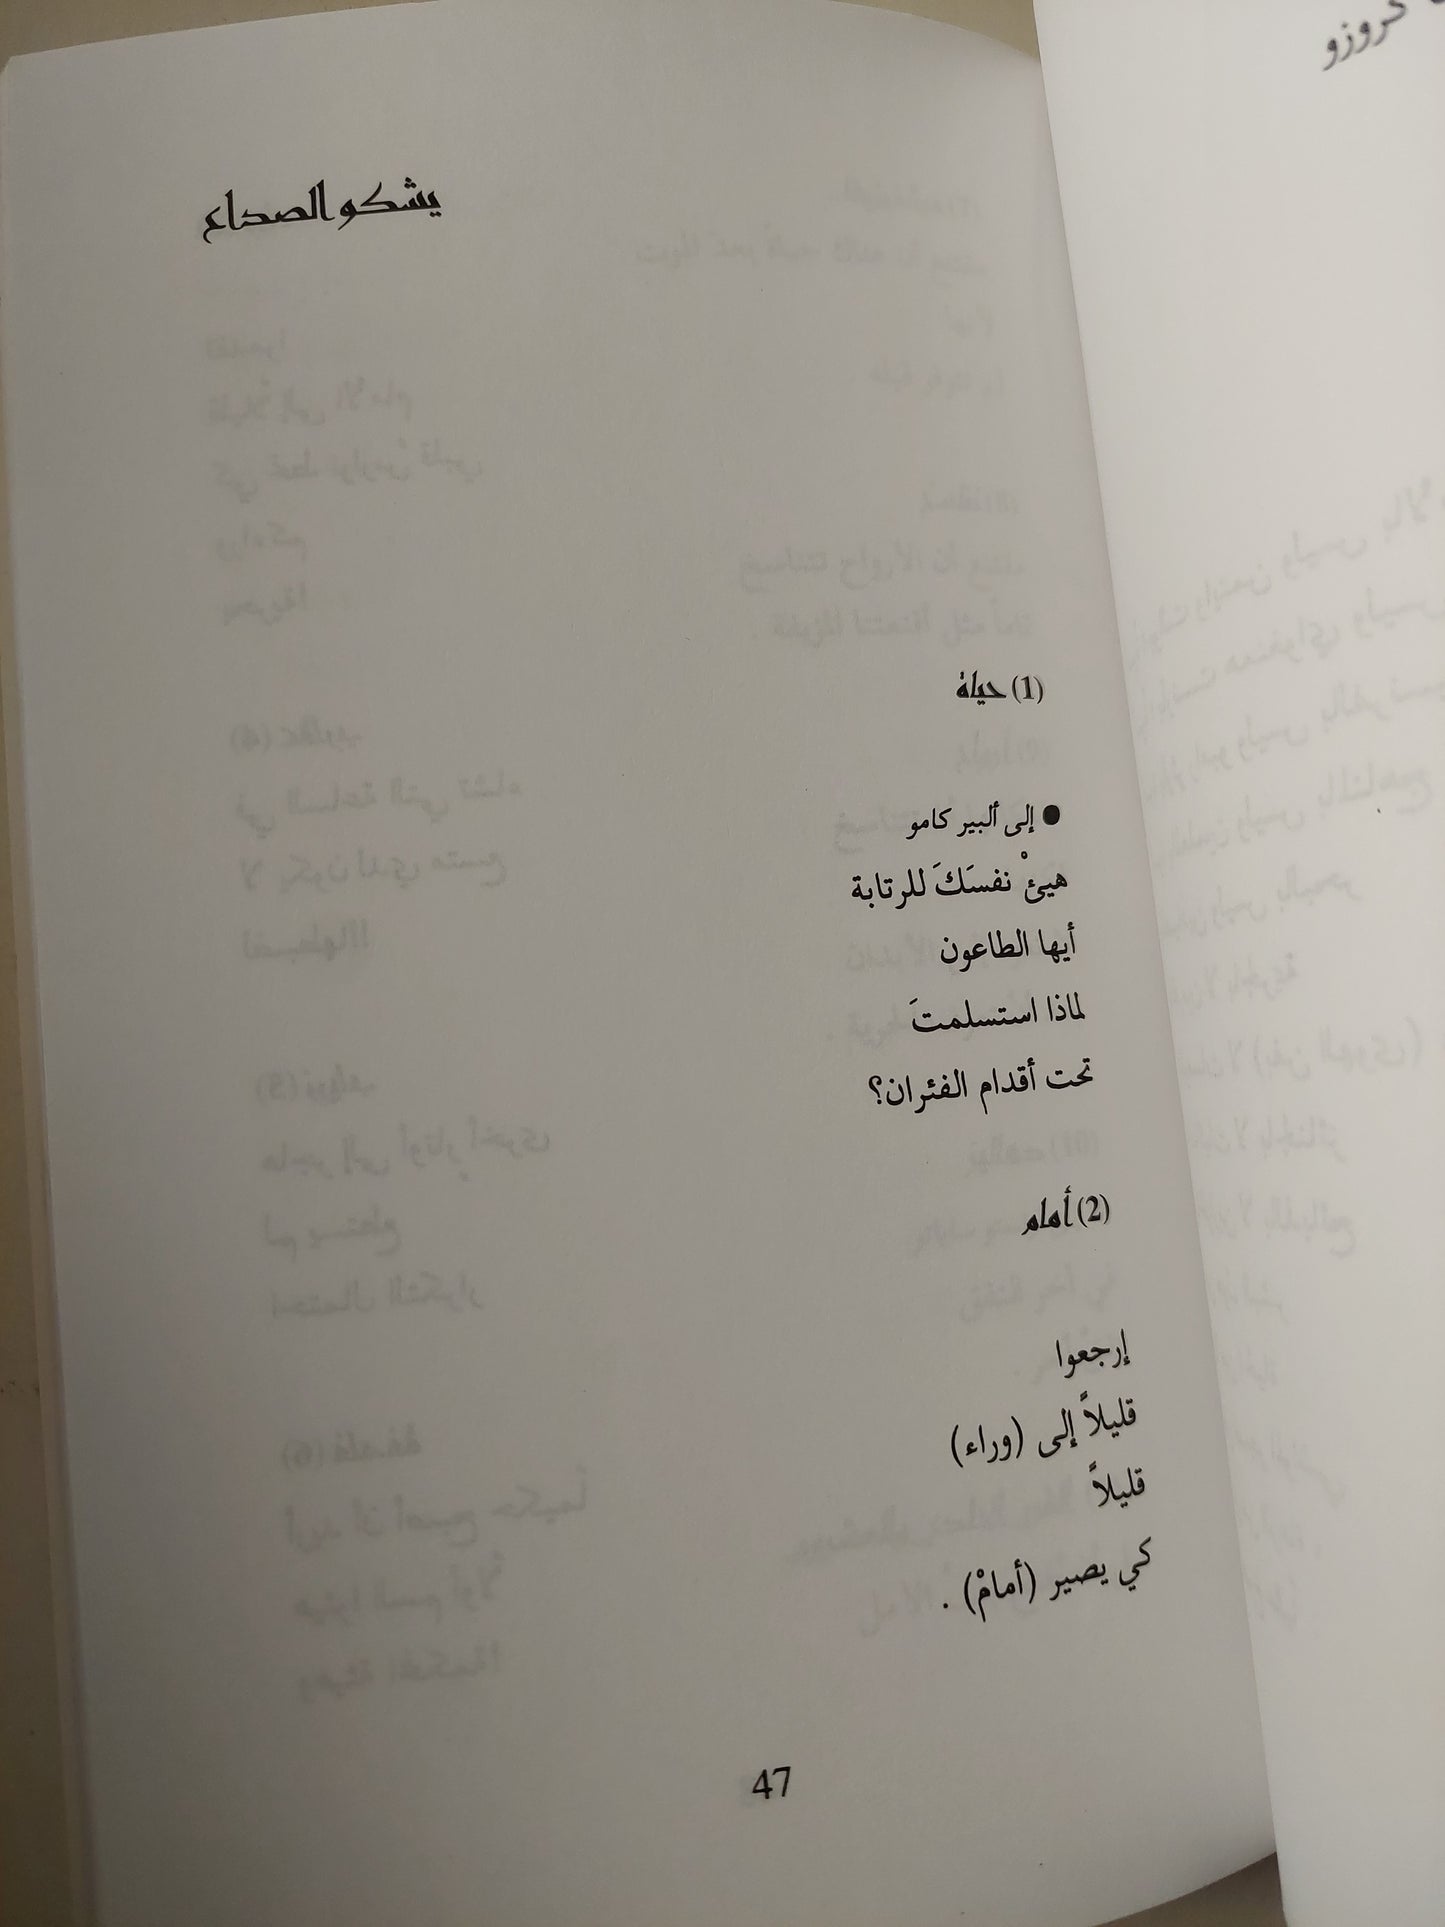 يشكو الصداع
(1) حياة
● إلى ألبير كامو
هيئْ نفسَكَ للرتابة
أيها الطاعون
لماذا استسلمتَ
تحت أقدام الفئران؟
(2) أمام
إرجعوا
قليلاً إلى (وراء)
قليلاً
كي يصير (أمامْ) .
47
كروزو